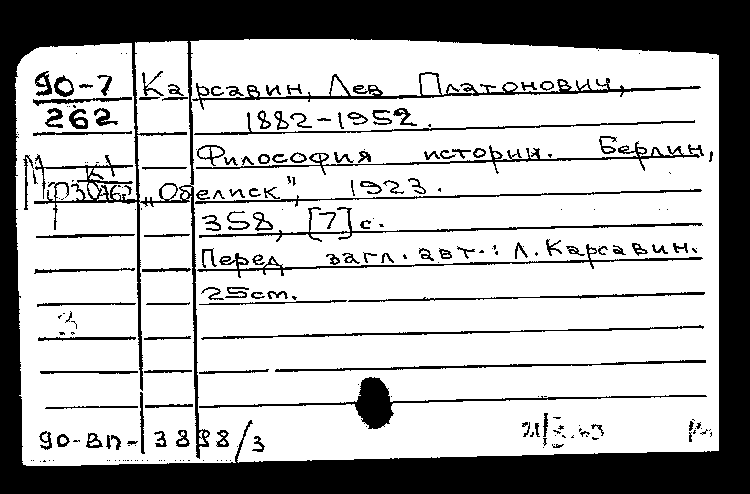 90-7 Карсавин, Лев Платонович,
262 1882-1952.
Философия истории. Берлин,
„Обелиск", 1923.
358, [7] с.
Перед загл. авт.: Л. Карсавин.
25 cm.
3
90-ВП-3898/3